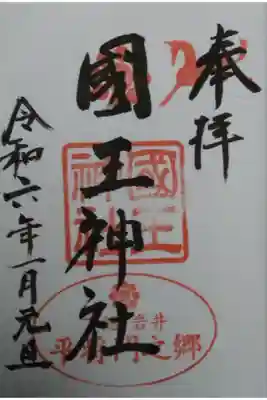 奉拝
國王神社
國王神社
岩井
平将門之郷
令和六年一月元旦